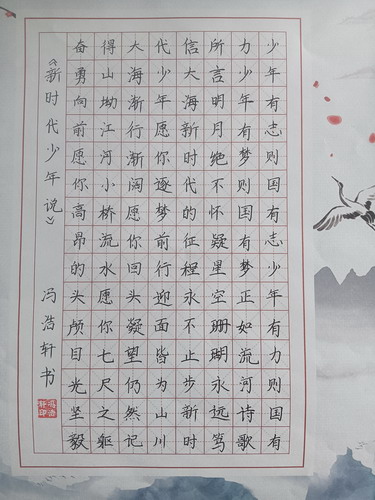 少年有志则国有志少年有力则国有
力少年有梦则国有梦正如流河诗歌
所言明月绝不怀疑星空珊瑚永远笃
信大海新时代的征程永不止步新时
代少年愿你逐梦前行迎面皆为山川
大海渐行渐阔愿你回头凝望仍然记
得山坳江河小桥流水愿你七尺之躯
奋勇向前愿你高昂的头颅目光坚毅
《新时代少年说》 冯浩轩书